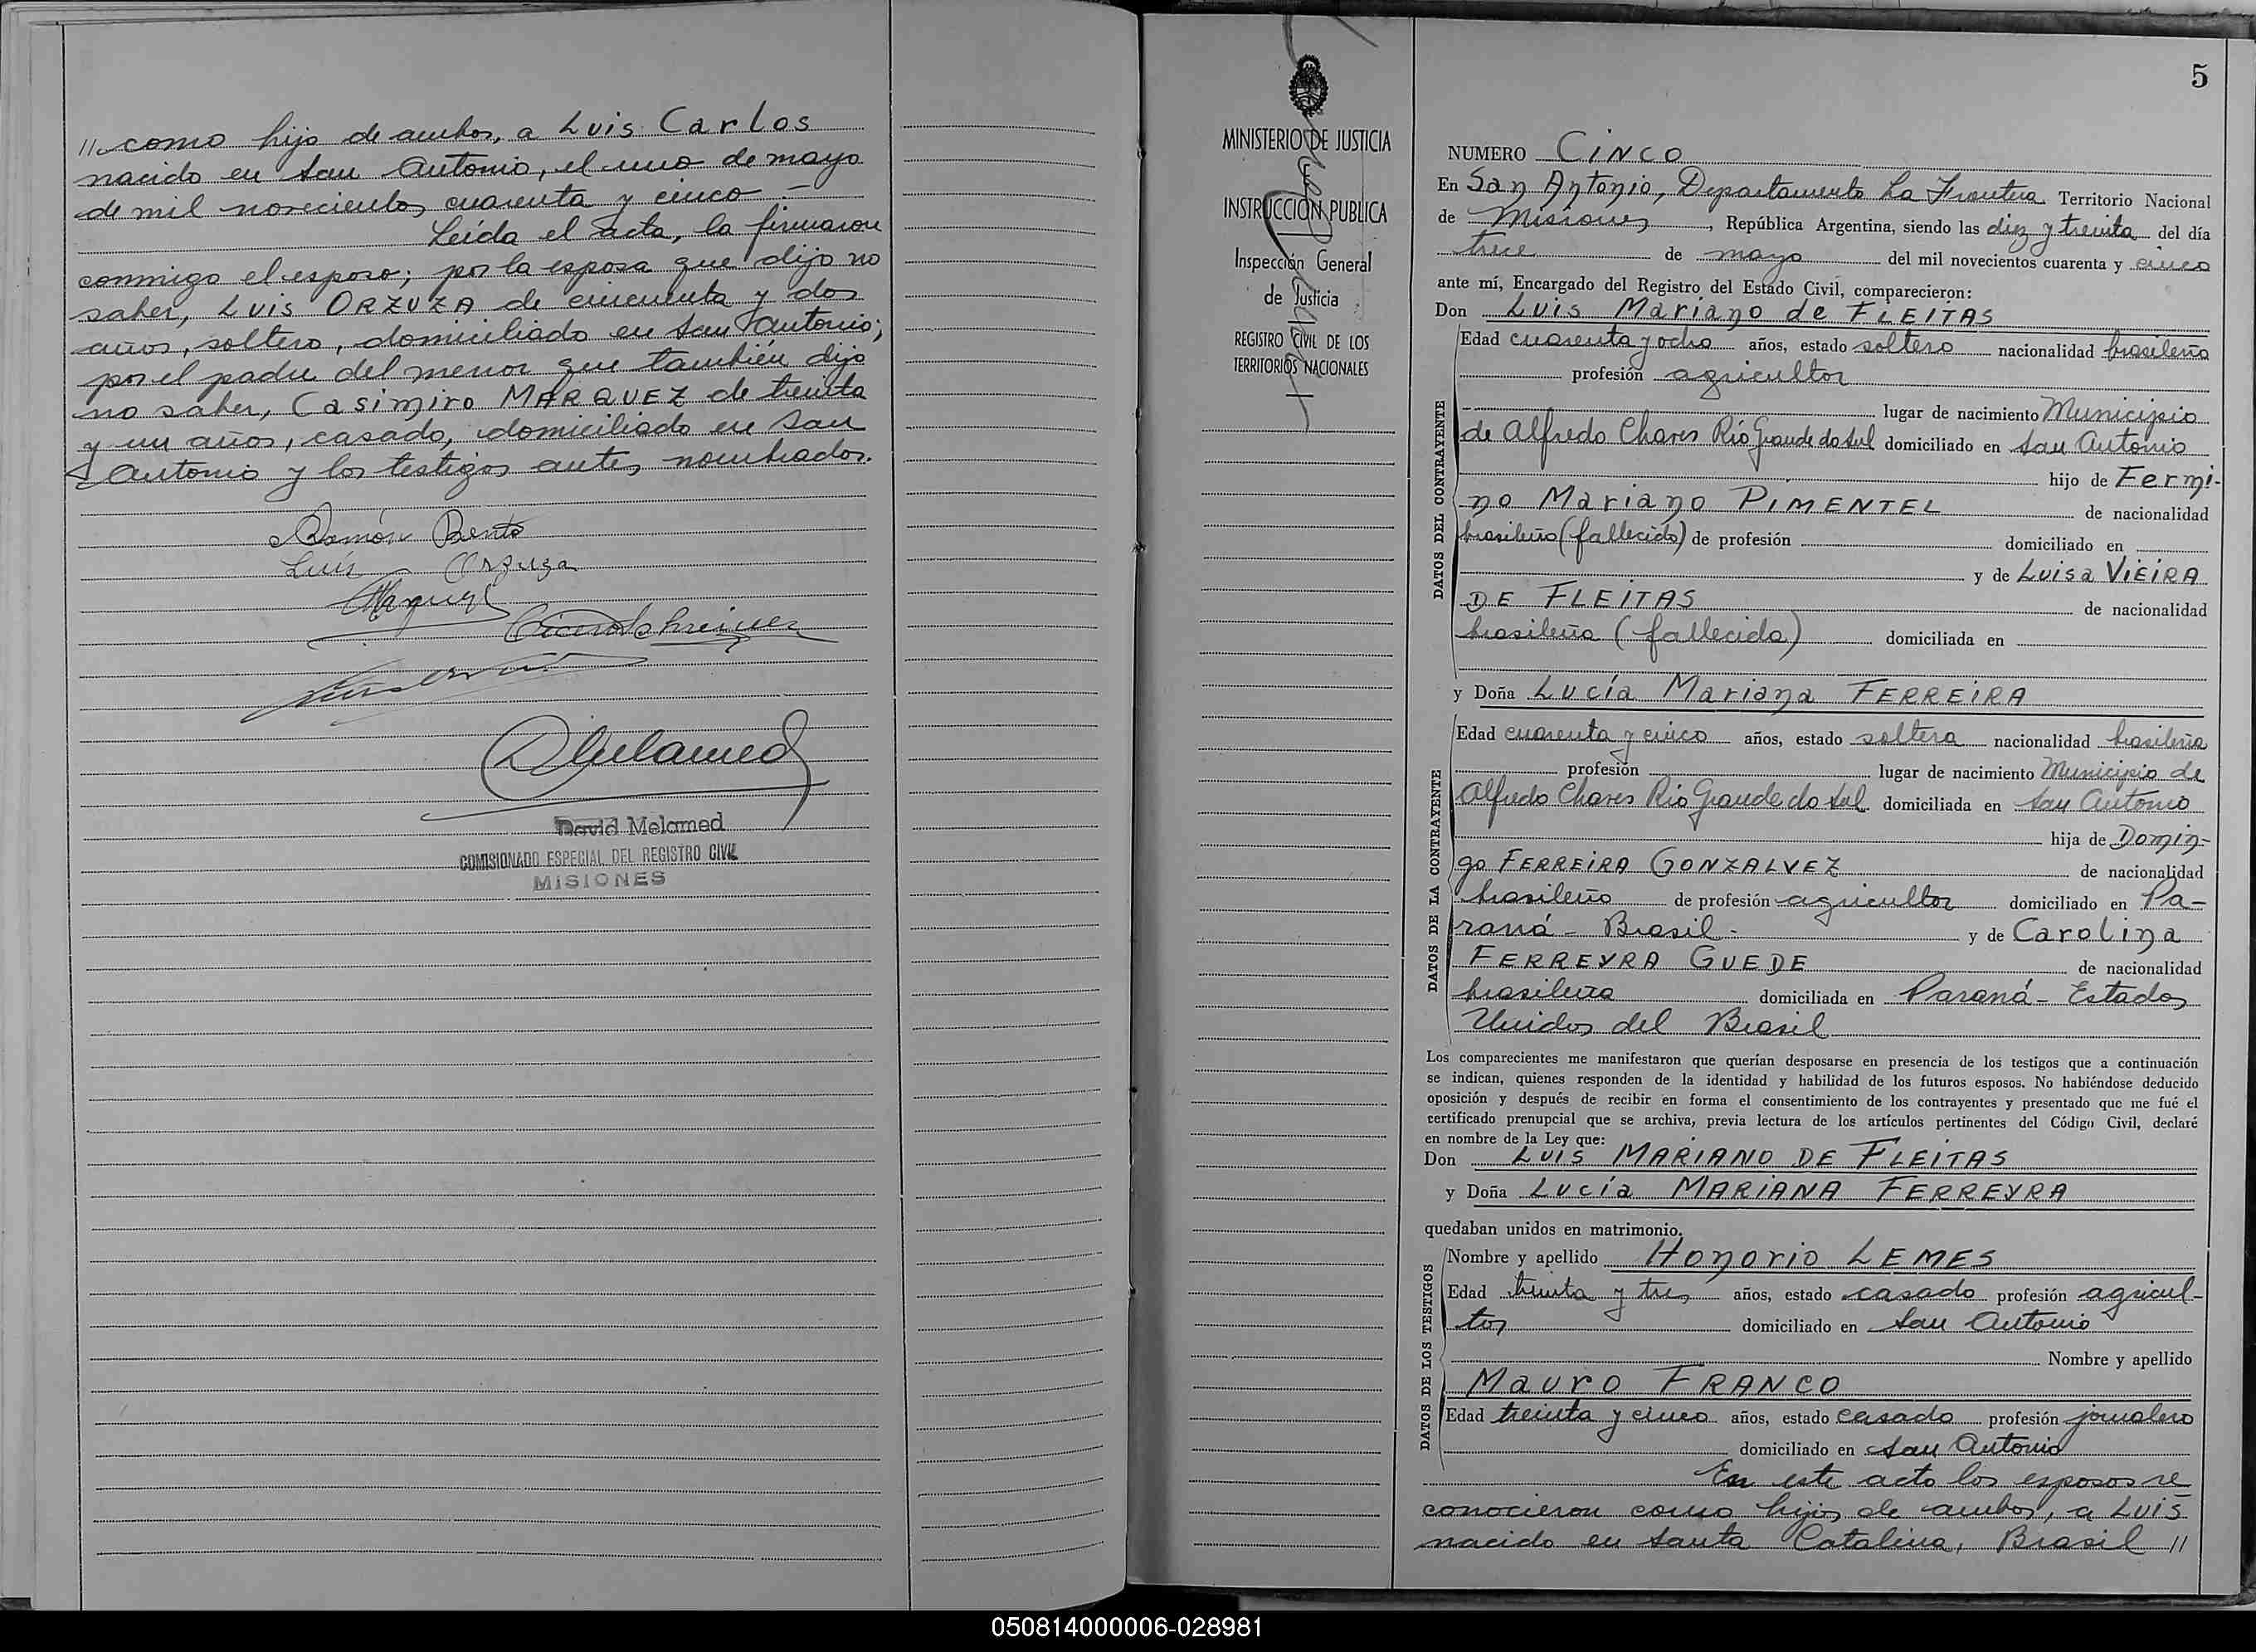 // como hijo de ambos, a Luis Carlos
nacido en San Antonio, el uno de mayo
de mil novecientos cuarenta y cinco —
Leída el acta, la firmaron
conmigo el esposo; por la esposa que dijo no
saber, Luis ORZUZA de cincuenta y dos
años, soltero, domiciliado en San Antonio;
por el padre del menor que también dijo
no saber, Casimiro MARQUEZ de treinta
y un años, casado, domiciliado en San
Antonio y los testigos antes nombrados.
Ramón Bento
Luís Orzuza
Marquez
David Melamed
COMISIONADO ESPECIAL DEL REGISTRO CIVIL
MISIONES
MINISTERIO DE JUSTICIA
E
INSTRUCCION PUBLICA
Inspección General
de Justicia
REGISTRO CIVIL DE LOS
TERRITORIOS NACIONALES
5
NUMERO CINCO
En San Antonio, Departamento La Frontera Territorio Nacional
de Misiones, República Argentina, siendo las diez y treinta del día
trece de mayo del mil novecientos cuarenta y cinco
ante mí, Encargado del Registro del Estado Civil, comparecieron:
Don Luis Mariano de FLEITAS
DATOS DEL CONTRAYENTE
Edad cuarenta y ocho años, estado soltero nacionalidad brasileña
profesión agricultor
lugar de nacimiento Municipio
de Alfredo Chaves Río Grande do Sul domiciliado en San Antonio
hijo de Fermi-
no Mariano PIMENTEL de nacionalidad
brasileño (fallecido) de profesión domiciliado en
y de Luisa VIEIRA
DE FLEITAS de nacionalidad
brasileña (fallecida) domiciliada en
y Doña Lucía Mariana FERREIRA
DATOS DE LA CONTRAYENTE
Edad cuarenta y cinco años, estado soltera nacionalidad brasileña
profesión lugar de nacimiento Municipio de
Alfredo Chaves Río Grande do Sul domiciliada en San Antonio
hija de Domin-
go FERREIRA GONZALVEZ de nacionalidad
brasileño de profesión agricultor domiciliado en Pa-
raná - Brasil - y de Carolina
FERREYRA GUEDE de nacionalidad
brasilera domiciliada en Paraná - Estados
Unidos del Brasil
Los comparecientes me manifestaron que querían desposarse en presencia de los testigos que a continuación
se indican, quienes responden de la identidad y habilidad de los futuros esposos. No habiéndose deducido
oposición y después de recibir en forma el consentimiento de los contrayentes y presentado que me fué el
certificado prenupcial que se archiva, previa lectura de los artículos pertinentes del Código Civil, declaré
en nombre de la Ley que:
Don Luis MARIANO DE FLEITAS
y Doña Lucía MARIANA FERREYRA
quedaban unidos en matrimonio.
DATOS DE LOS TESTIGOS
Nombre y apellido Honorio LEMES
Edad treinta y tres años, estado casado profesión agricul-
tor domiciliado en San Antonio
Nombre y apellido
Mauro FRANCO
Edad treinta y cinco años, estado casado profesión jornalero
domiciliado en San Antonio
En este acto los esposos re
conocieron como hijos de ambos, a LUIS
nacido en Santa Catalina, Brasil //
050814000006-028981